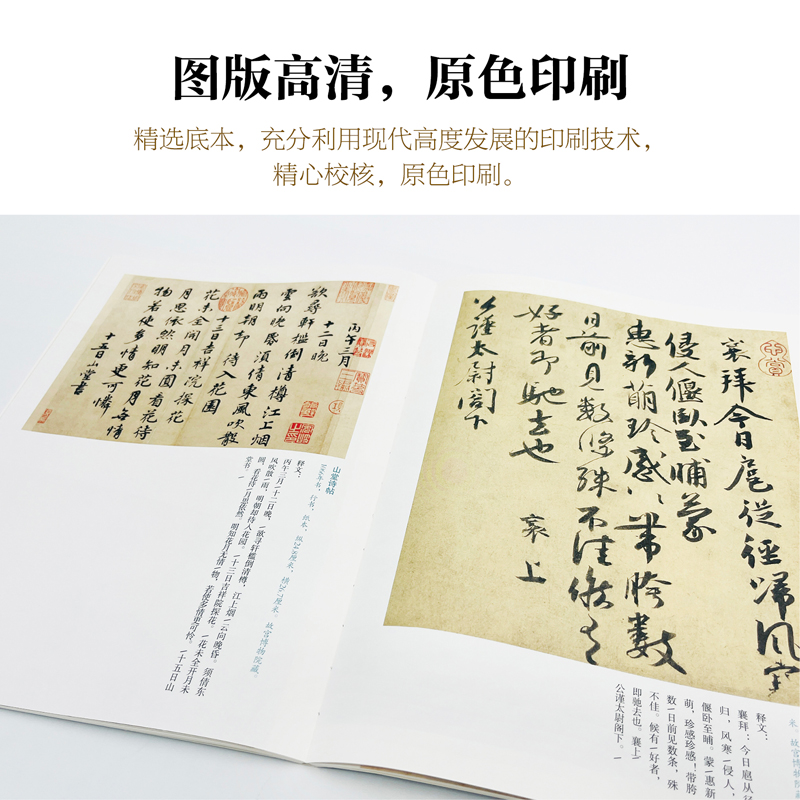 图版高清，原色印刷
精选底本，充分利用现代高度发展的印刷技术，
精心校核，原色印刷。
丙午三月
十二日晚
欲尋軒檻倒清樽江上烟
雲向晚昏須倩東風吹散
雨明朝却待入花園
十三日吉祥院探花
花未全開月未圓看花待
月思依然明知花月無情
物若使多情更可憐
十五日山堂書
山堂诗帖
1066年书，行书，纸本，纵24.8厘米，横26.7厘米，故宫博物院藏。
释文：
丙午三月/十二日晚，/欲寻轩槛倒清樽，江上烟/云向晚昏。须倩东
风吹散/雨，明朝却待入花园。/十三日吉祥院探花。/花未全开月未
圆，看花待/月思依然。明知花月无情/物，若使多情更可怜。/十五日山
堂书。/
襄拜今日扈從徑歸風寒
侵人偃臥至晡蒙
惠新萌珍感〻帶胯數
日前見數條殊不佳候有
好者即馳去也 襄上
公謹太尉閤下
米，故宫博物院藏
释文：
襄拜：今日扈从径
归，风寒/侵人，
偃卧至晡。蒙/惠新
萌，珍感珍感！带胯
数/日前见数条，殊
不佳。候有/好者，
即驰去也。襄上/
公谨太尉阁下。/